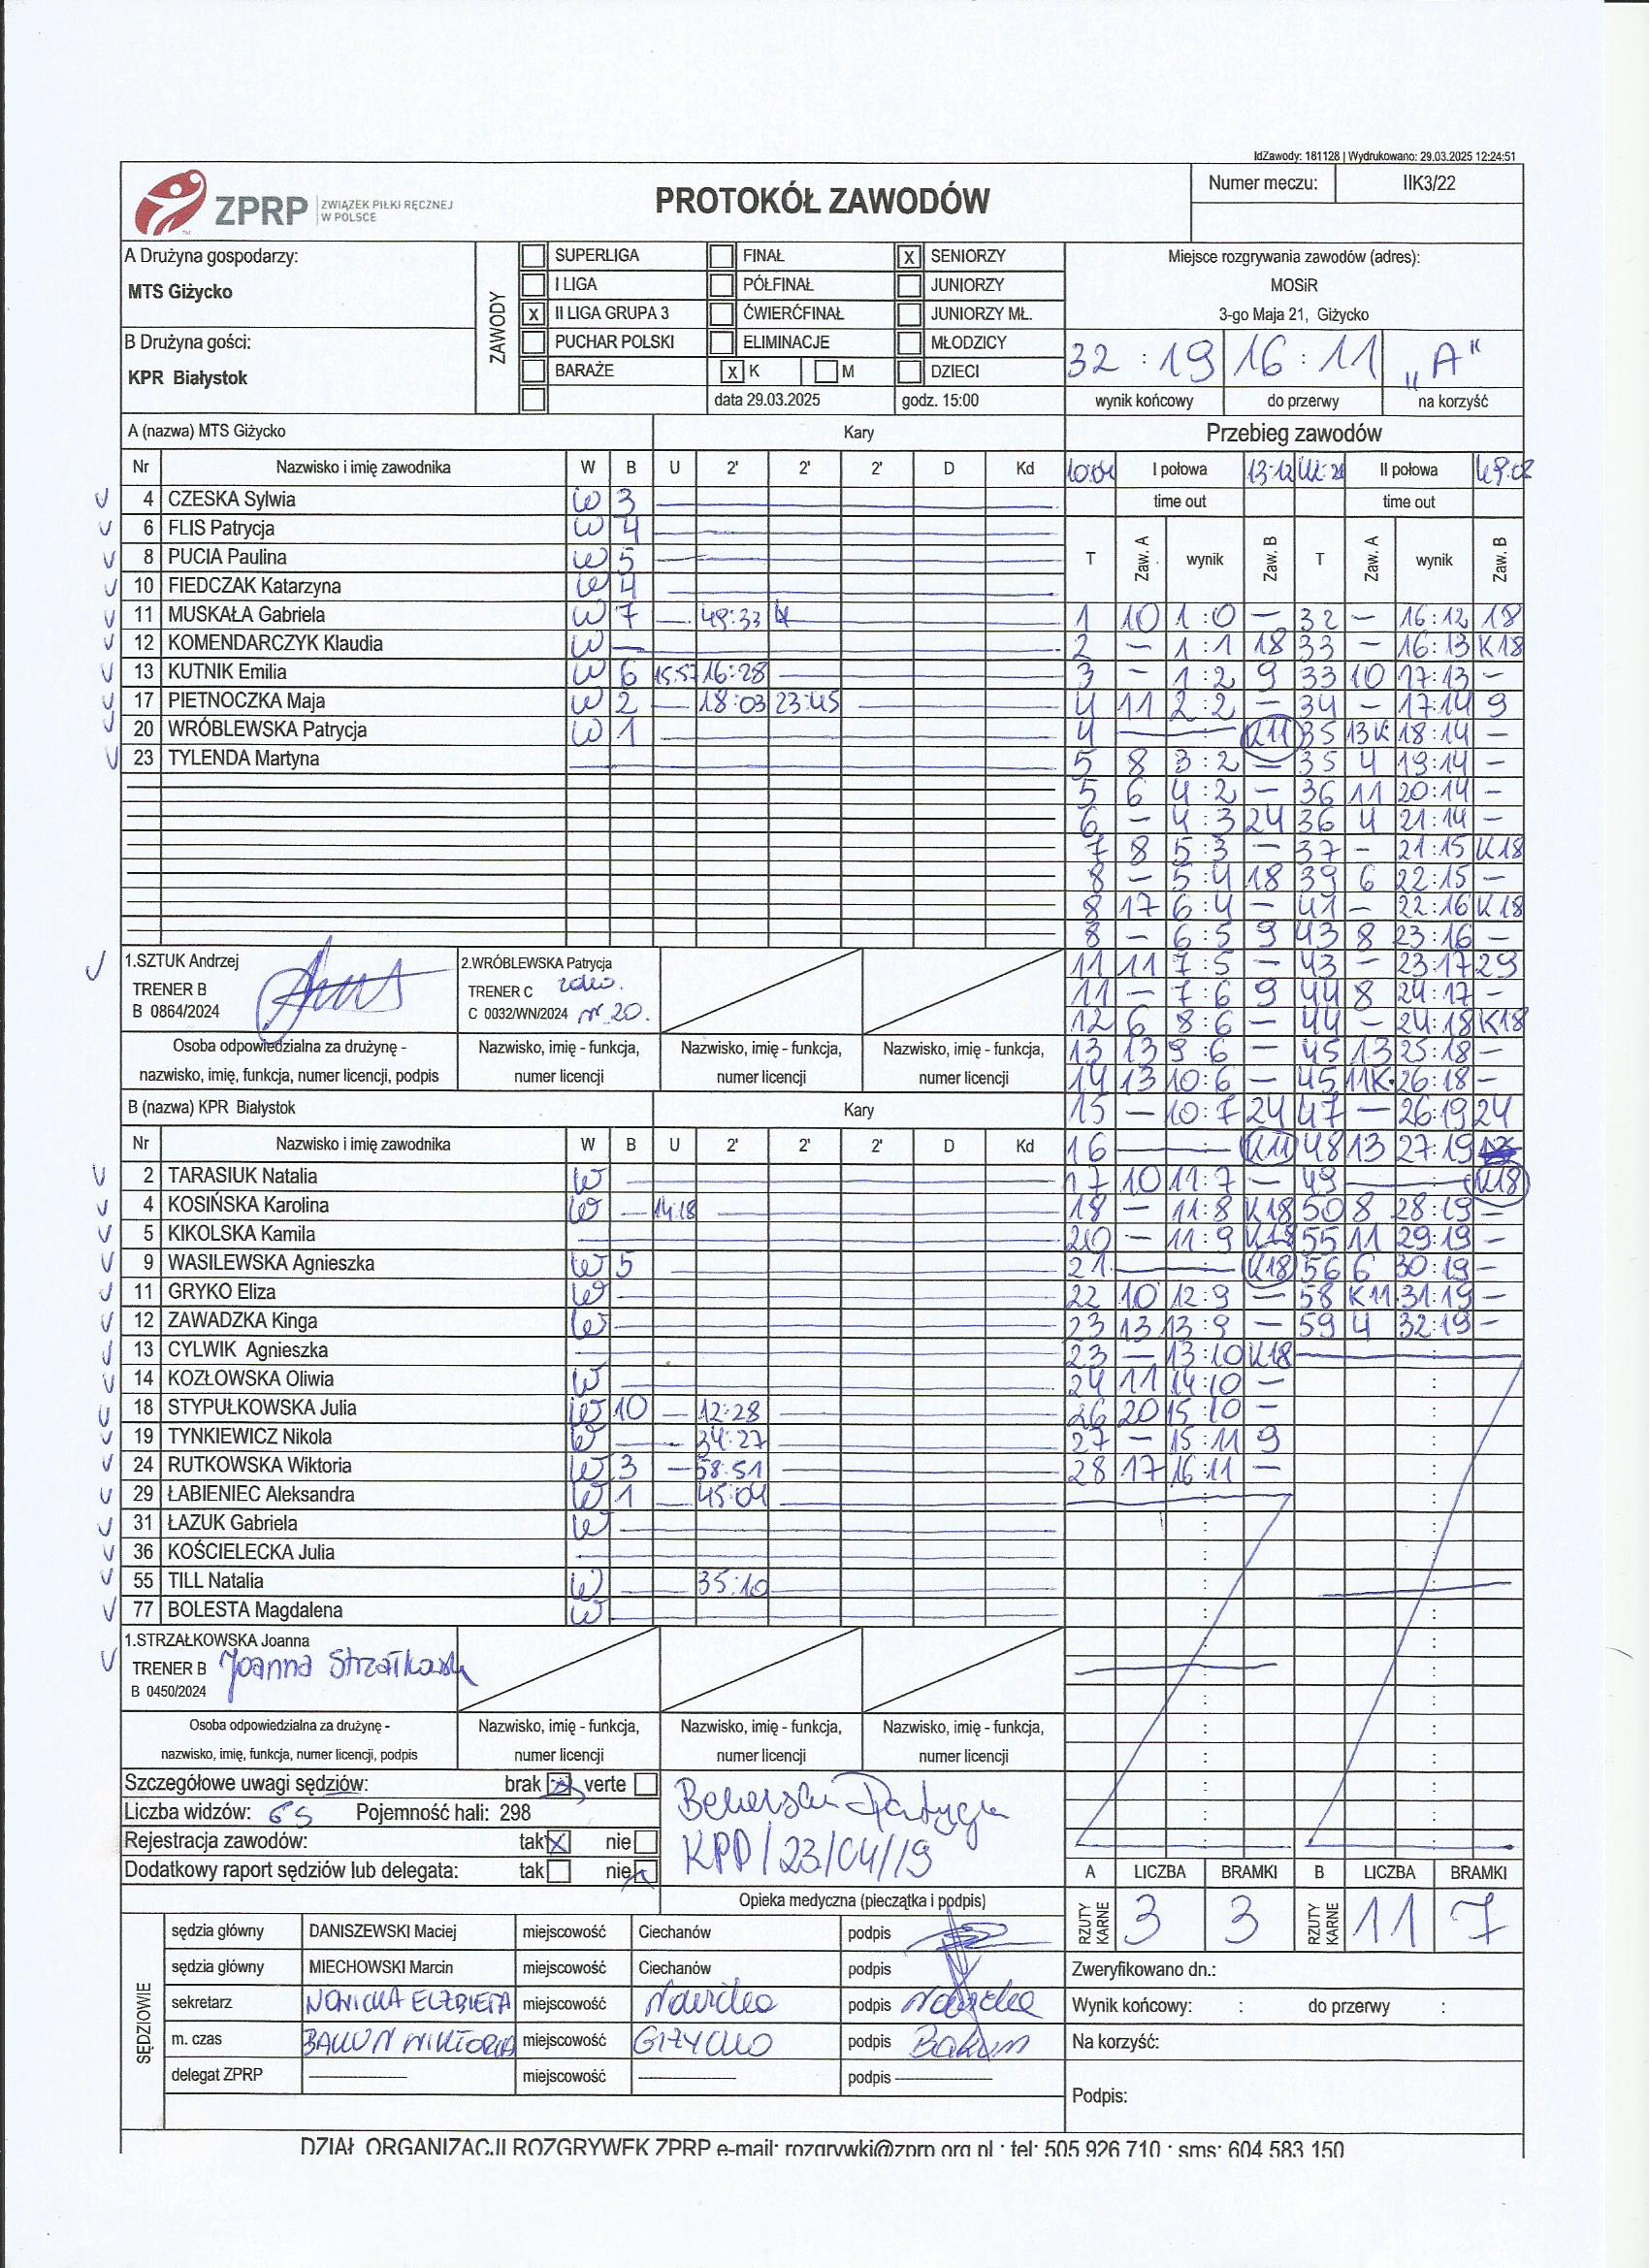 IdZawody: 181128 | Wydrukowano: 29.03.2025 12:24:51
ZPRP ZWIĄZEK PIŁKI RĘCZNEJ W POLSCE
PROTOKÓŁ ZAWODÓW
Numer meczu: IIK3/22
A Drużyna gospodarzy:
MTS Giżycko
B Drużyna gości:
KPR Białystok
ZAWODY
SUPERLIGA FINAŁ X SENIORZY
I LIGA PÓŁFINAŁ JUNIORZY
X II LIGA GRUPA 3 ĆWIERĆFINAŁ JUNIORZY MŁ.
PUCHAR POLSKI ELIMINACJE MŁODZICY
BARAŻE X K M DZIECI
data 29.03.2025 godz. 15:00
Miejsce rozgrywania zawodów (adres):
MOSiR
3-go Maja 21, Giżycko
32 : 19 16 : 11 „A"
wynik końcowy do przerwy na korzyść
A (nazwa) MTS Giżycko Kary
Nr Nazwisko i imię zawodnika W B U 2' 2' 2' D Kd
4 CZESKA Sylwia W 3
6 FLIS Patrycja W 4
8 PUCIA Paulina W 5
10 FIEDCZAK Katarzyna W 4
11 MUSKAŁA Gabriela W 7 — 49:33
12 KOMENDARCZYK Klaudia W —
13 KUTNIK Emilia W 6 15:57 16:28
17 PIETNOCZKA Maja W 2 — 18:03 23:45
20 WRÓBLEWSKA Patrycja W 1
23 TYLENDA Martyna
1.SZTUK Andrzej
TRENER B
B 0864/2024
2.WRÓBLEWSKA Patrycja
TRENER C
C 0032/WN/2024 nr 20.
Osoba odpowiedzialna za drużynę - nazwisko, imię, funkcja, numer licencji, podpis
Nazwisko, imię - funkcja, numer licencji
Nazwisko, imię - funkcja, numer licencji
Nazwisko, imię - funkcja, numer licencji
B (nazwa) KPR Białystok Kary
Nr Nazwisko i imię zawodnika W B U 2' 2' 2' D Kd
2 TARASIUK Natalia W
4 KOSIŃSKA Karolina W — 14:18
5 KIKOLSKA Kamila
9 WASILEWSKA Agnieszka W 5
11 GRYKO Eliza W
12 ZAWADZKA Kinga W
13 CYLWIK Agnieszka
14 KOZŁOWSKA Oliwia W
18 STYPUŁKOWSKA Julia W 10 — 12:28
19 TYNKIEWICZ Nikola W — 34:27
24 RUTKOWSKA Wiktoria W 3 — 58:51
29 ŁABIENIEC Aleksandra W 1 — 45:04
31 ŁAZUK Gabriela W
36 KOŚCIELECKA Julia
55 TILL Natalia W — 35:10
77 BOLESTA Magdalena W
1.STRZAŁKOWSKA Joanna
TRENER B Joanna Strzałkowska
B 0450/2024
Osoba odpowiedzialna za drużynę - nazwisko, imię, funkcja, numer licencji, podpis
Nazwisko, imię - funkcja, numer licencji
Nazwisko, imię - funkcja, numer licencji
Nazwisko, imię - funkcja, numer licencji
Przebieg zawodów
10:04 I połowa 13:12 II połowa 49:02
time out time out
T Zaw. A wynik Zaw. B T Zaw. A wynik Zaw. B
1 10 1:0 — 32 — 16:12 18
2 — 1:1 18 33 — 16:13 K18
3 — 1:2 9 33 10 17:13 —
4 11 2:2 — 34 — 17:14 9
4 — : K11 35 13K 18:14 —
5 8 3:2 — 35 4 19:14 —
5 6 4:2 — 36 11 20:14 —
6 — 4:3 24 36 4 21:14 —
7 8 5:3 — 37 — 21:15 K18
8 — 5:4 18 39 6 22:15 —
8 17 6:4 — 41 — 22:16 K18
8 — 6:5 9 43 8 23:16 —
11 11 7:5 — 43 — 23:17 29
11 — 7:6 9 44 8 24:17 —
12 6 8:6 — 44 — 24:18 K18
13 13 9:6 — 45 13 25:18 —
14 13 10:6 — 45 11K 26:18 —
15 — 10:7 24 47 — 26:19 24
16 — : K11 48 13 27:19
17 10 11:7 — 49 — : K18
18 — 11:8 K18 50 8 28:19 —
20 — 11:9 K18 55 11 29:19 —
21 — : K18 56 6 30:19 —
22 10 12:9 — 58 K11 31:19 —
23 13 13:9 — 59 4 32:19 —
23 — 13:10 K18
24 11 14:10 —
26 20 15:10 —
27 — 15:11 9
28 17 16:11 —
Szczegółowe uwagi sędziów: brak X verte
Liczba widzów: 65 Pojemność hali: 298
Rejestracja zawodów: tak X nie
Dodatkowy raport sędziów lub delegata: tak nie X
KPP/23/04/19
Opieka medyczna (pieczątka i podpis)
A LICZBA BRAMKI B LICZBA BRAMKI
RZUTY KARNE 3 3 RZUTY KARNE 11 7
SĘDZIOWIE
sędzia główny DANISZEWSKI Maciej miejscowość Ciechanów podpis
sędzia główny MIECHOWSKI Marcin miejscowość Ciechanów podpis
sekretarz NOWICKA ELŻBIETA miejscowość podpis
m. czas BAKUN WIKTORIA miejscowość GIŻYCKO podpis Bakun
delegat ZPRP miejscowość podpis
Zweryfikowano dn.:
Wynik końcowy: : do przerwy :
Na korzyść:
Podpis:
DZIAŁ ORGANIZACJI ROZGRYWEK ZPRP e-mail: rozgrywki@zprp.org.pl ; tel: 505 926 710 ; sms: 604 583 150